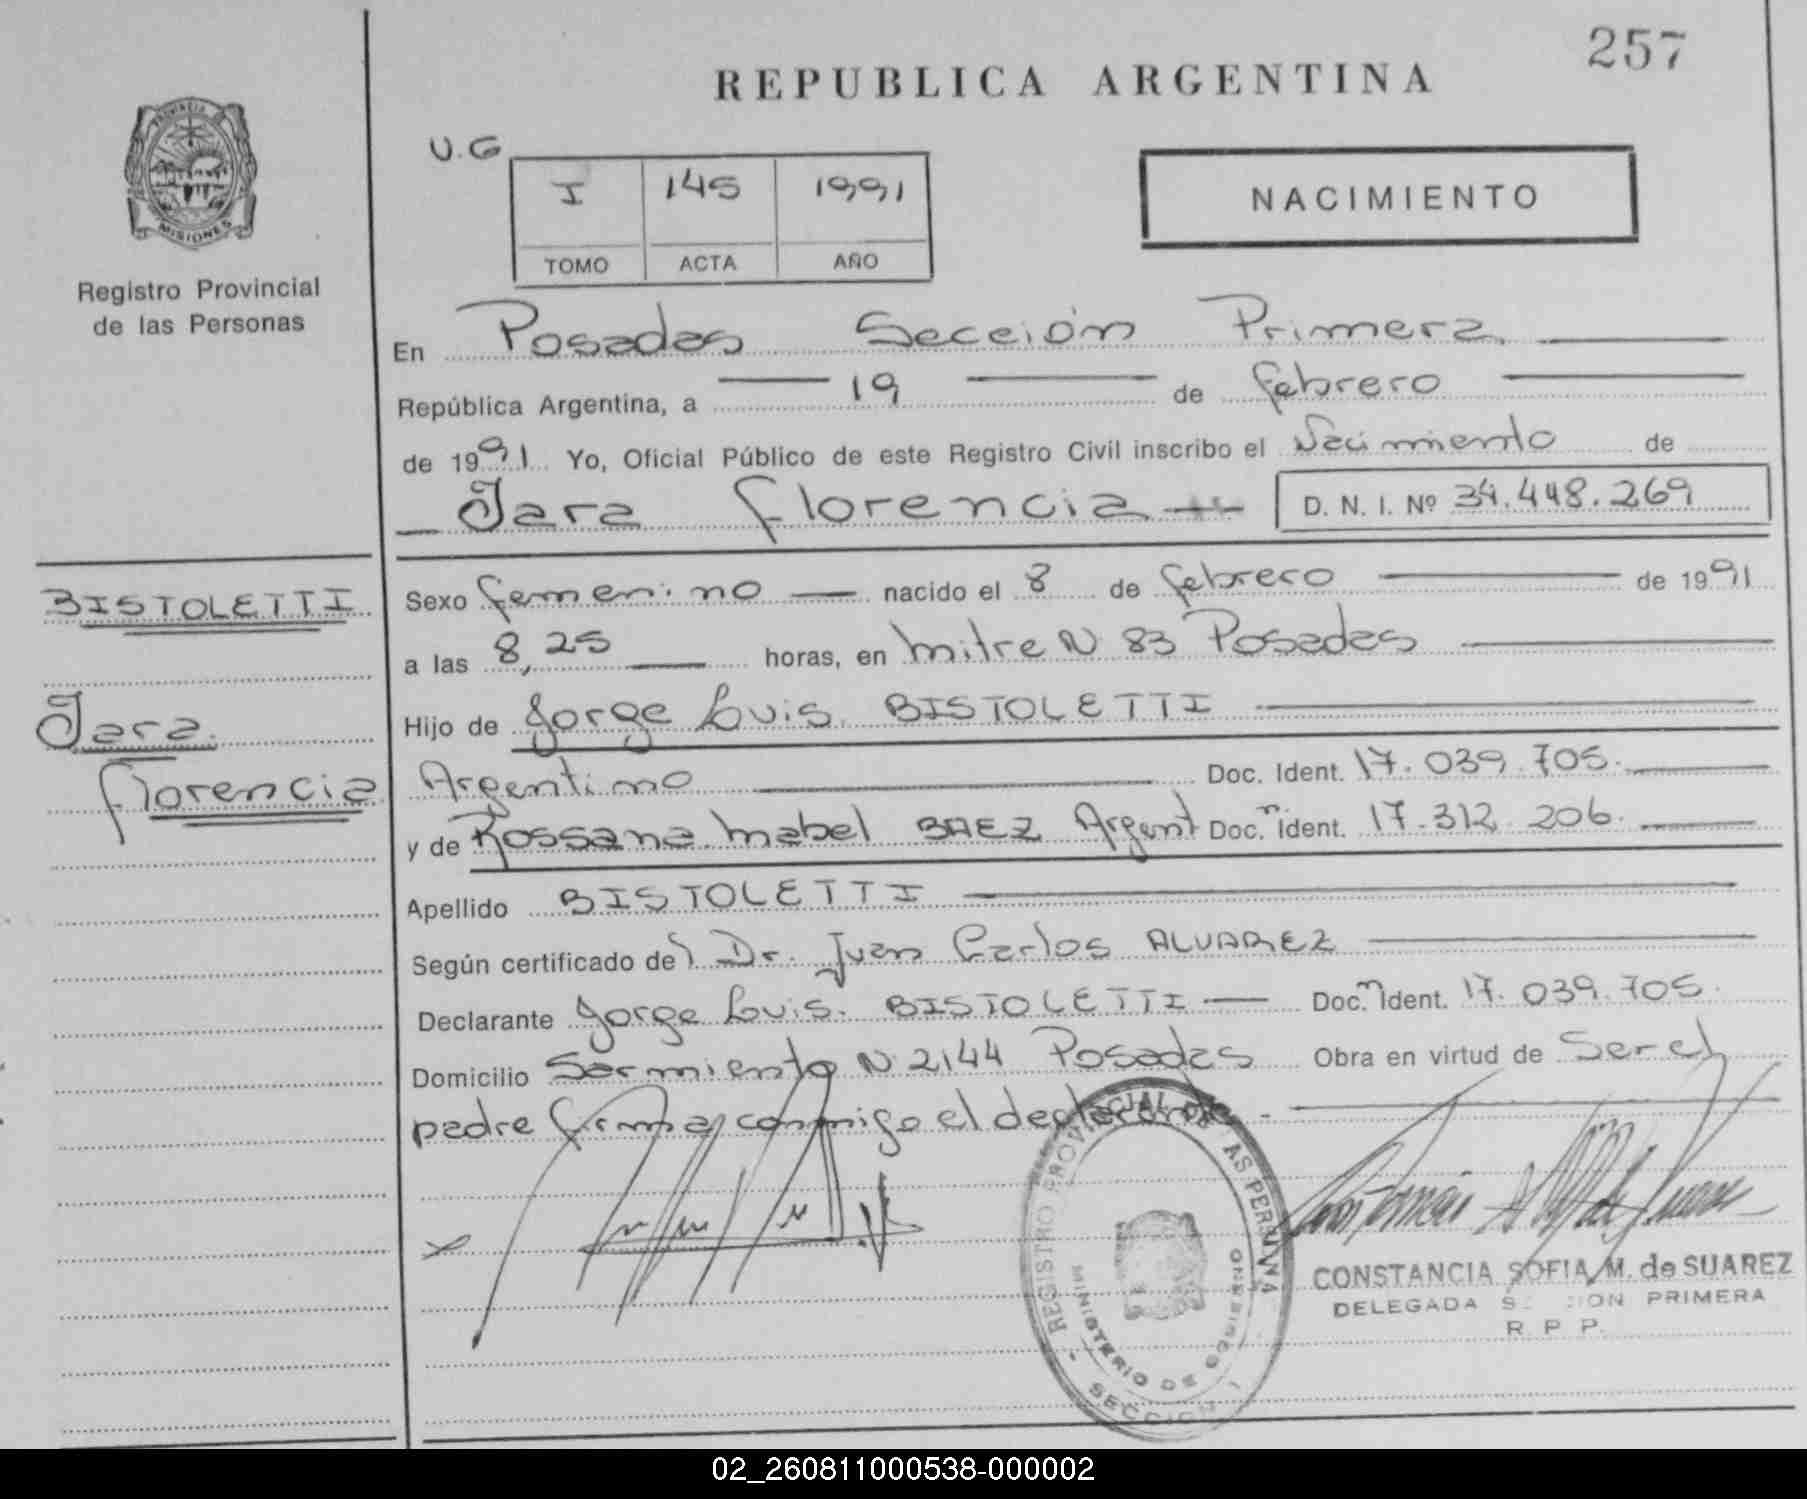 257
REPUBLICA ARGENTINA
U.G
I 145 1991
TOMO ACTA AÑO
NACIMIENTO
PROVINCIA
MISIONES
Registro Provincial
de las Personas
En Posadas Sección Primera
República Argentina, a 19 de febrero
de 1991 Yo, Oficial Público de este Registro Civil inscribo el Nacimiento de
Jara Florencia D. N. I. Nº 34.448.269
BISTOLETTI
Jara
Florencia
Sexo femenino nacido el 8 de febrero de 1991
a las 8,25 horas, en Mitre N 83 Posadas
Hijo de Jorge Luis BISTOLETTI
Argentino Doc. Ident. 17.039.705.
y de Rossana Mabel BAEZ Argent Doc.n Ident. 17.312.206.
Apellido BISTOLETTI
Según certificado del Dr. Juan Carlos ALVAREZ
Declarante Jorge Luis BISTOLETTI Doc.n Ident. 17.039.705.
Domicilio Sarmiento N 2144 Posadas Obra en virtud de Ser el
padre firma conmigo el declarante
REGISTRO PROVINCIAL DE LAS PERSONAS
MINISTERIO DE GOBIERNO
SECCION
CONSTANCIA SOFIA M. de SUAREZ
DELEGADA SECCION PRIMERA
R. P. P.
02_260811000538-000002